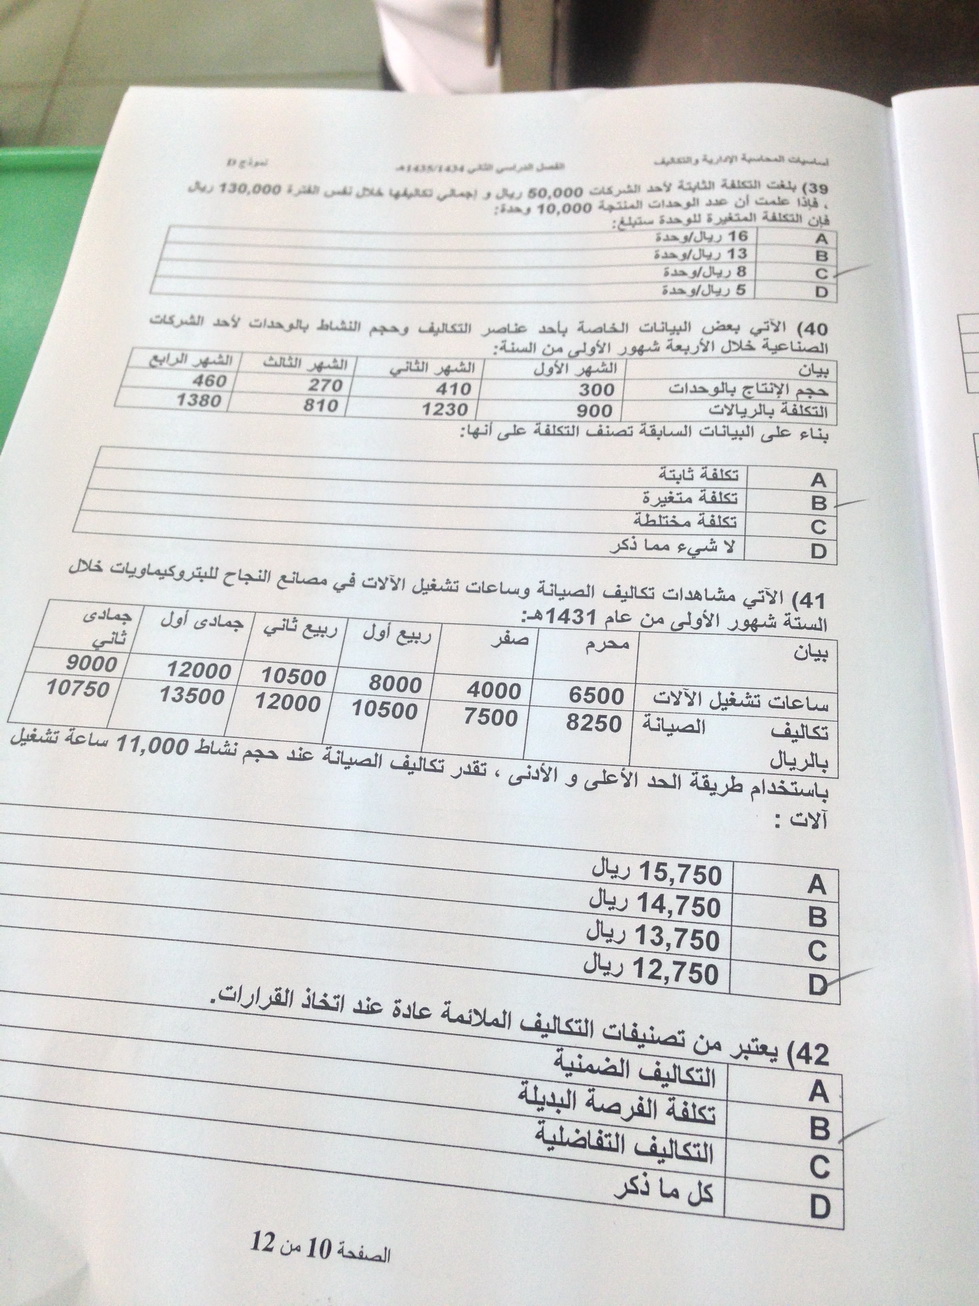 أساسيات المحاسبة الإدارية والتكاليف الفصل الدراسي الثاني 1435/1434هـ نموذج D
39) بلغت التكلفة الثابتة لأحد الشركات 50,000 ريال و إجمالي تكاليفها خلال نفس الفترة 130,000 ريال
، فإذا علمت أن عدد الوحدات المنتجة 10,000 وحدة:
فإن التكلفة المتغيرة للوحدة ستبلغ:
A 16 ريال/وحدة
B 13 ريال/وحدة
C 8 ريال/وحدة
D 5 ريال/وحدة
40) الآتي بعض البيانات الخاصة بأحد عناصر التكاليف وحجم النشاط بالوحدات لأحد الشركات
الصناعية خلال الأربعة شهور الأولى من السنة:
بيان الشهر الأول الشهر الثاني الشهر الثالث الشهر الرابع
حجم الإنتاج بالوحدات 300 410 270 460
التكلفة بالريالات 900 1230 810 1380
بناء على البيانات السابقة تصنف التكلفة على أنها:
A تكلفة ثابتة
B تكلفة متغيرة
C تكلفة مختلطة
D لا شيء مما ذكر
41) الآتي مشاهدات تكاليف الصيانة وساعات تشغيل الآلات في مصانع النجاح للبتروكيماويات خلال
الستة شهور الأولى من عام 1431هـ:
بيان محرم صفر ربيع أول ربيع ثاني جمادى أول جمادى
ثاني
ساعات تشغيل الآلات 6500 4000 8000 10500 12000 9000
تكاليف الصيانة 8250 7500 10500 12000 13500 10750
بالريال
باستخدام طريقة الحد الأعلى و الأدنى ، تقدر تكاليف الصيانة عند حجم نشاط 11,000 ساعة تشغيل
آلات :
A 15,750 ريال
B 14,750 ريال
C 13,750 ريال
D 12,750 ريال
42) يعتبر من تصنيفات التكاليف الملائمة عادة عند اتخاذ القرارات.
A التكاليف الضمنية
B تكلفة الفرصة البديلة
C التكاليف التفاضلية
D كل ما ذكر
الصفحة 10 من 12